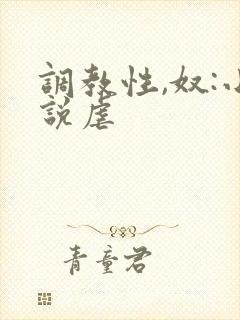 調教性,奴:小
説虐
青童君